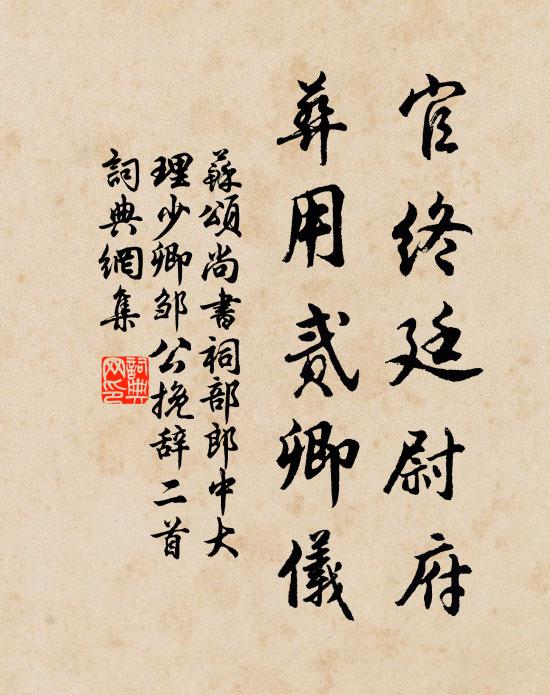 官终廷尉府
葬用贰卿儀
蘇頌尚書祠部郎中大
理少卿邹公挽辞二首
詞典網集
詞典
网印